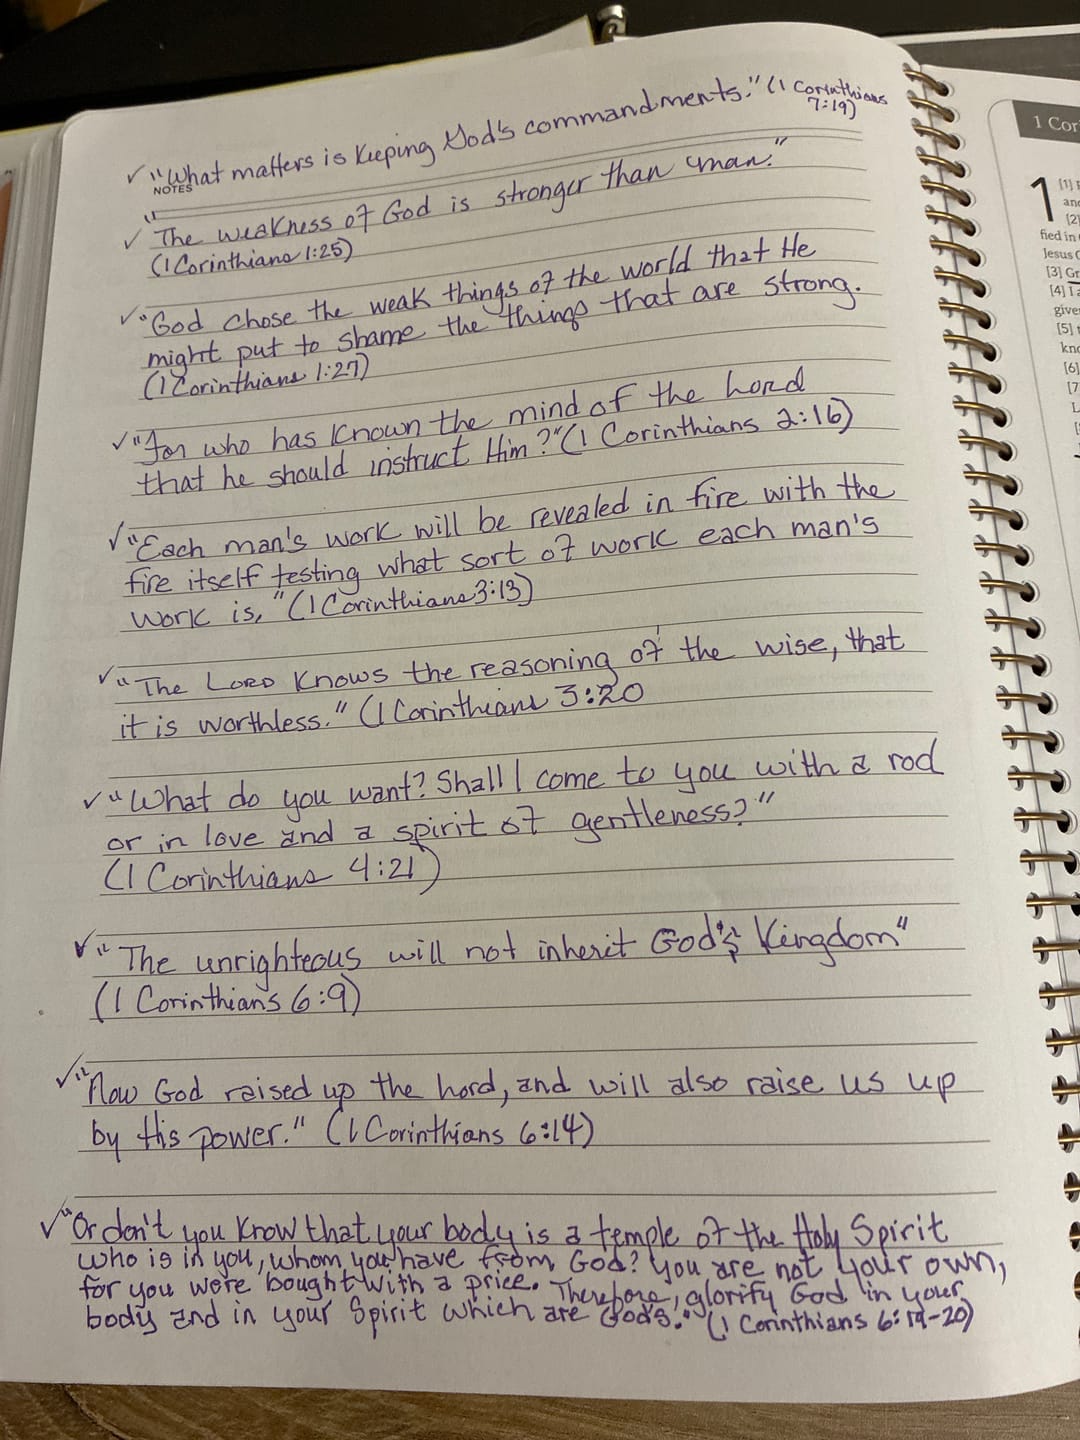 ✓ "What matters is keeping God's commandments." (1 Corinthians
7:19)
NOTES
✓ "The weakness of God is stronger than man."
(1 Corinthians 1:25)
✓ "God chose the weak things of the world that He
might put to shame the things that are strong.
(1 Corinthians 1:27)
✓ "For who has known the mind of the Lord
that he should instruct Him?" (1 Corinthians 2:16)
✓ "Each man's work will be revealed in fire with the
fire itself testing what sort of work each man's
work is." (1 Corinthians 3:13)
✓ "The LORD knows the reasoning of the wise, that
it is worthless." (1 Corinthians 3:20
✓ "What do you want? Shall I come to you with a rod
or in love and a spirit of gentleness?"
(1 Corinthians 4:21)
✓ "The unrighteous will not inherit God's Kingdom"
(1 Corinthians 6:9)
✓ "Now God raised up the Lord, and will also raise us up
by His power." (1 Corinthians 6:14)
✓ "Or don't you know that your body is a temple of the Holy Spirit
who is in you, whom you have from God? You are not your own,
for you were bought with a price. Therefore, glorify God in your
body and in your Spirit which are God's." (1 Corinthians 6:19-20)
1 Cor
1
[1]
and
[2]
fied in
Jesus
[3] Gr
[4] I
give
[5]
kno
[6]
[7